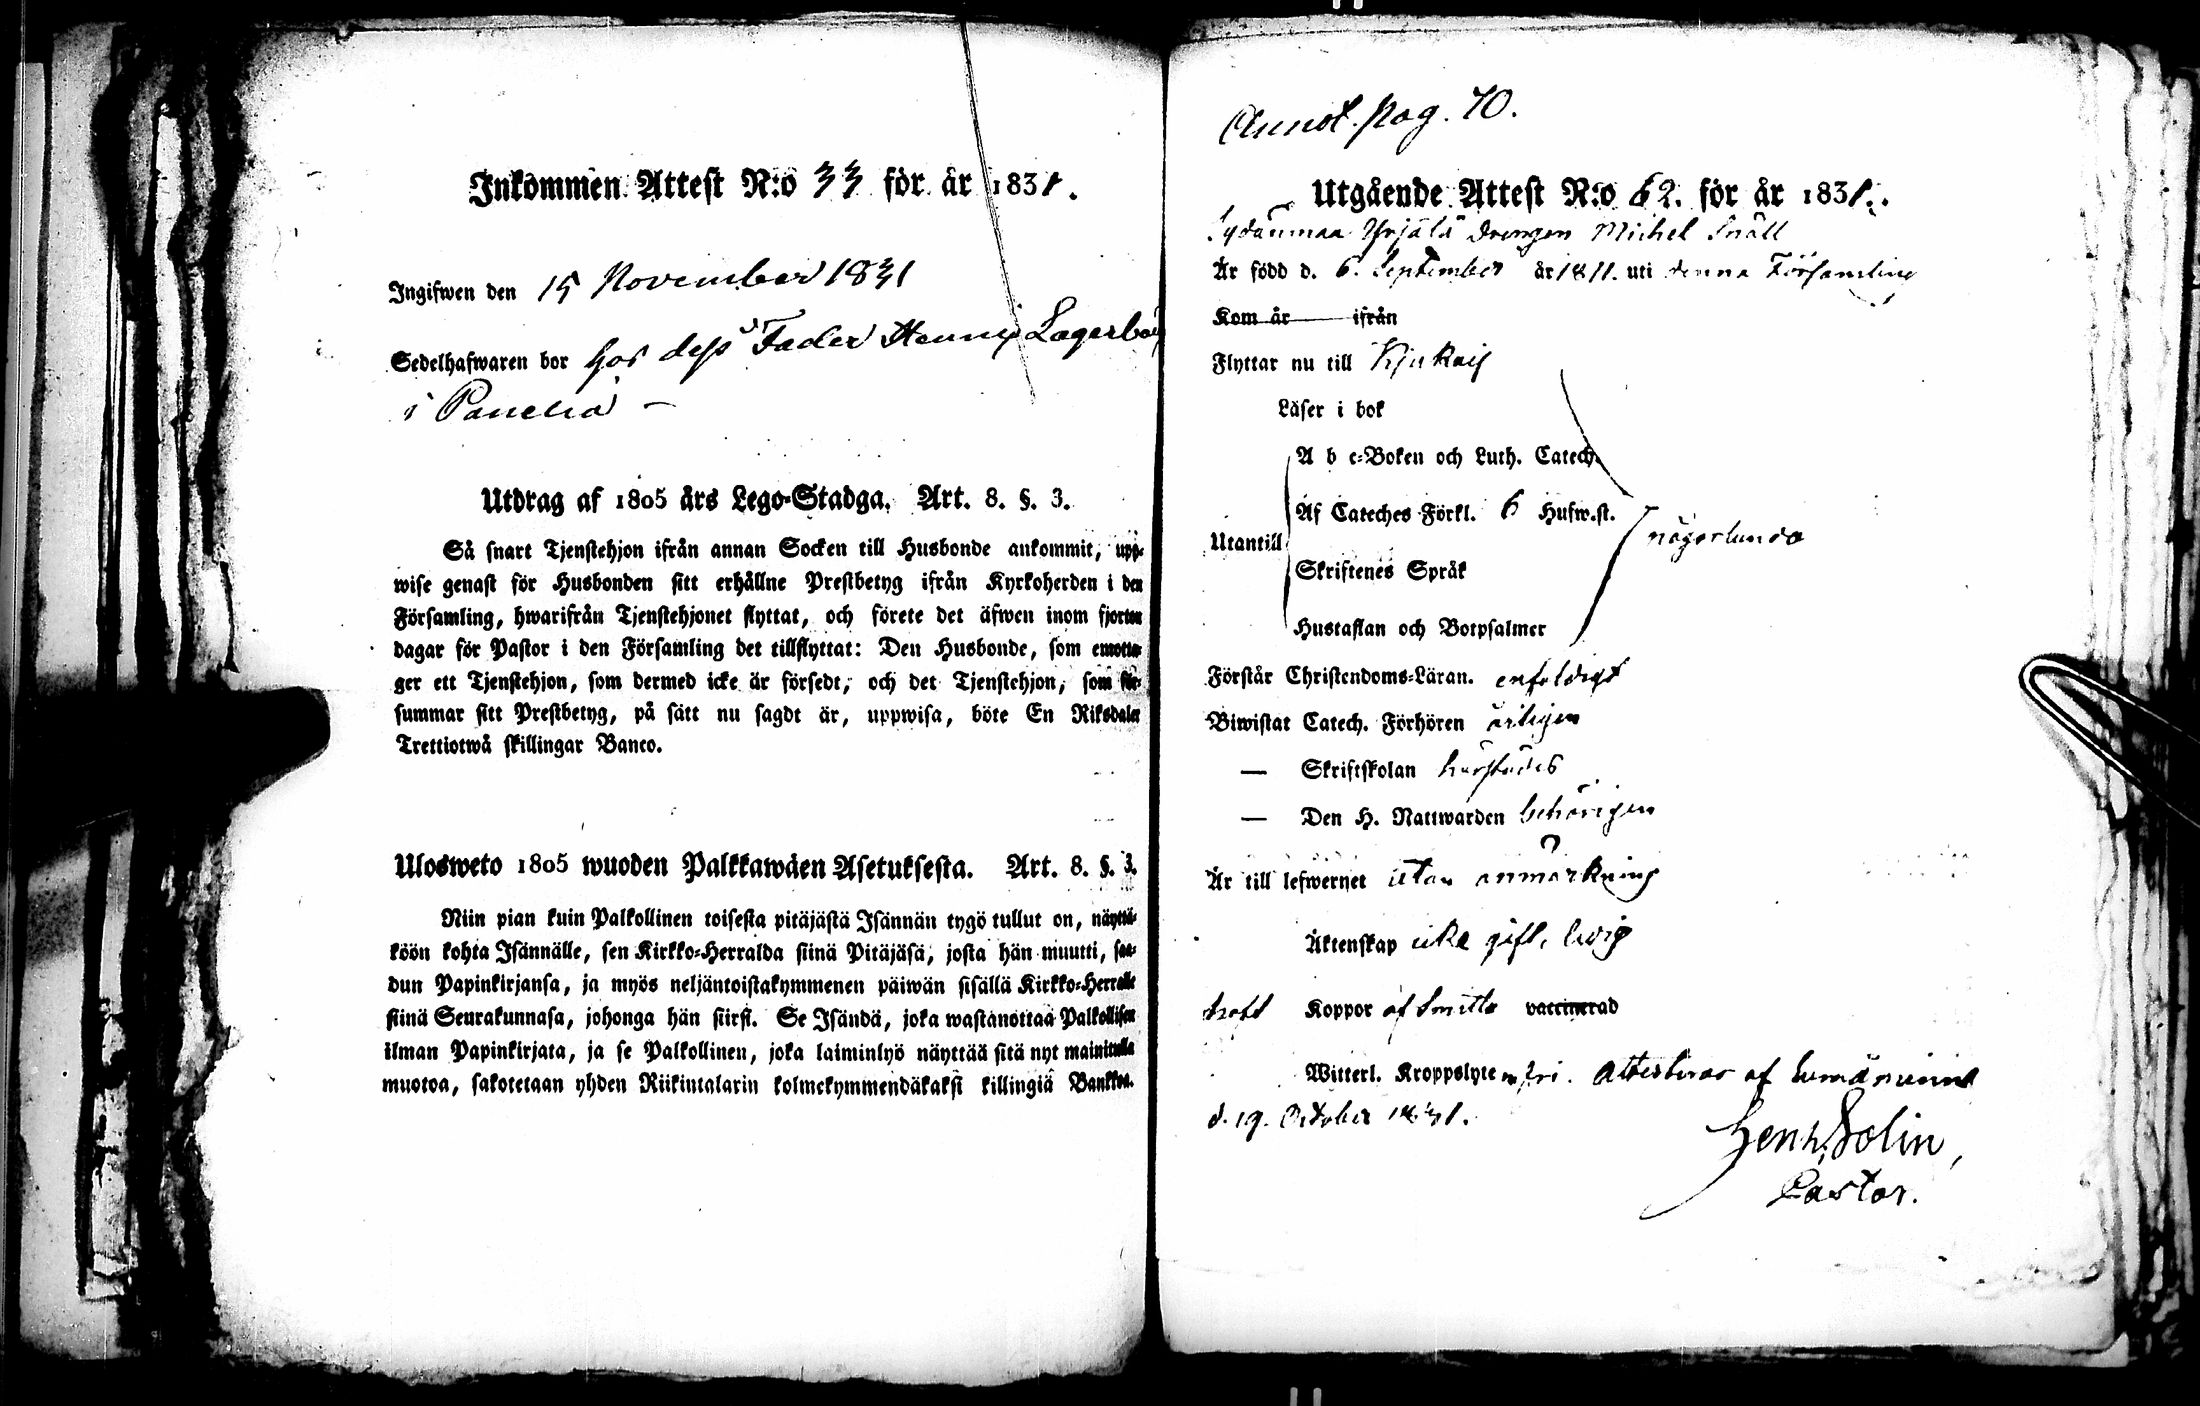 Inkommen Attest N:o 33 för år 1831.
Ingifwen den 15 November 1831
Sedelhafwaren bor hos dess Fader Henric Lagerbo
i Panelia –
Utdrag af 1805 års Lego-Stadga. Art. 8. §. 3.
Så snart Tjenstehjon ifrån annan Socken till Husbonde ankommit, upp-
wise genast för Husbonden sitt erhållne Prestbetyg ifrån Kyrkoherden i den
Församling, hwarifrån Tjenstehjonet flyttat, och förete det äfwen inom fjorton
dagar för Pastor i den Församling det tillflyttat: Den Husbonde, som emotta-
ger ett Tjenstehjon, som dermed icke är försedt, och det Tjenstehjon, som för-
summar sitt Prestbetyg, på sätt nu sagdt är, uppwisa, böte En Riksdaler
Trettiotwå skillingar Banco.
Ulosweto 1805 wuoden Palkkawäen Asetuksesta. Art. 8. §. 3.
Niin pian kuin Palkollinen toisesta pitäjästä Isännän tygö tullut on, näyttä-
köön kohta Isännälle, sen Kirkko-Herralda siinä Pitäjäsä, josta hän muutti, saa-
dun Papinkirjansa, ja myös neljäntoistakymmenen päiwän sisällä Kirkko-Herralle
siinä Seurakunnasa, johonga hän siirst. Se Isändä, joka wastanottaa Palkollisen
ilman Papinkirjata, ja se Palkollinen, joka laiminlyö näyttää sitä nyt mainitulla
muotoa, sakotetaan yhden Riikintalarin kolmekymmendäkaksi killingiä Bankkoa.
Annot. Pag. 70.
Utgående Attest N:o 62. för år 1831.
Sydänmaa Yrjälä Drengen Michel Snäll
Är född d. 6. September år 1811. uti denna Församling
Kom år ifrån
Flyttar nu till Kjukais
Läser i bok
A b c-Boken och Luth. Catech.
Af Cateches Förkl. 6 Hufw.st.
Utantill någorlunda
Skriftenes Språk
Hustaflan och Botpsalmer
Förstår Christendoms-Läran. enfaldigt
Biwistat Catech. Förhören årligen
— Skriftskolan härstädes
— Den H. Nattwarden behörigen
Är till lefwernet utan anmärkning
Äktenskap icke gift, ledig
haft Koppor af Smitta vaccinerad
Witterl. Kroppslyte fri. Attesteras af Eumäminne
d. 19. October 1831.
Henr. Solin,
Pastor.